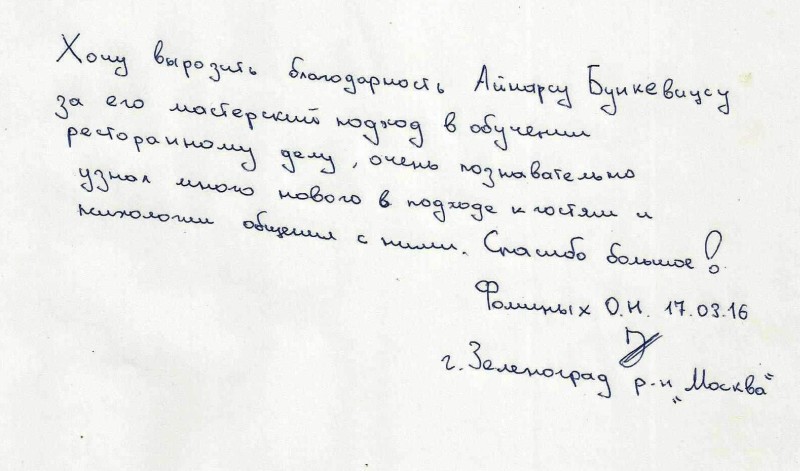 Хочу вырозить благодарность Айнарсу Бункевицсу
за его мастерский подход в обучении
ресторанному делу, очень познавательно
узнал много нового в подходе к гостям и
психологии общения с ними. Спасибо большое!
Фоминых О.Н. 17.03.16
г. Зеленоград р-н „Москва“